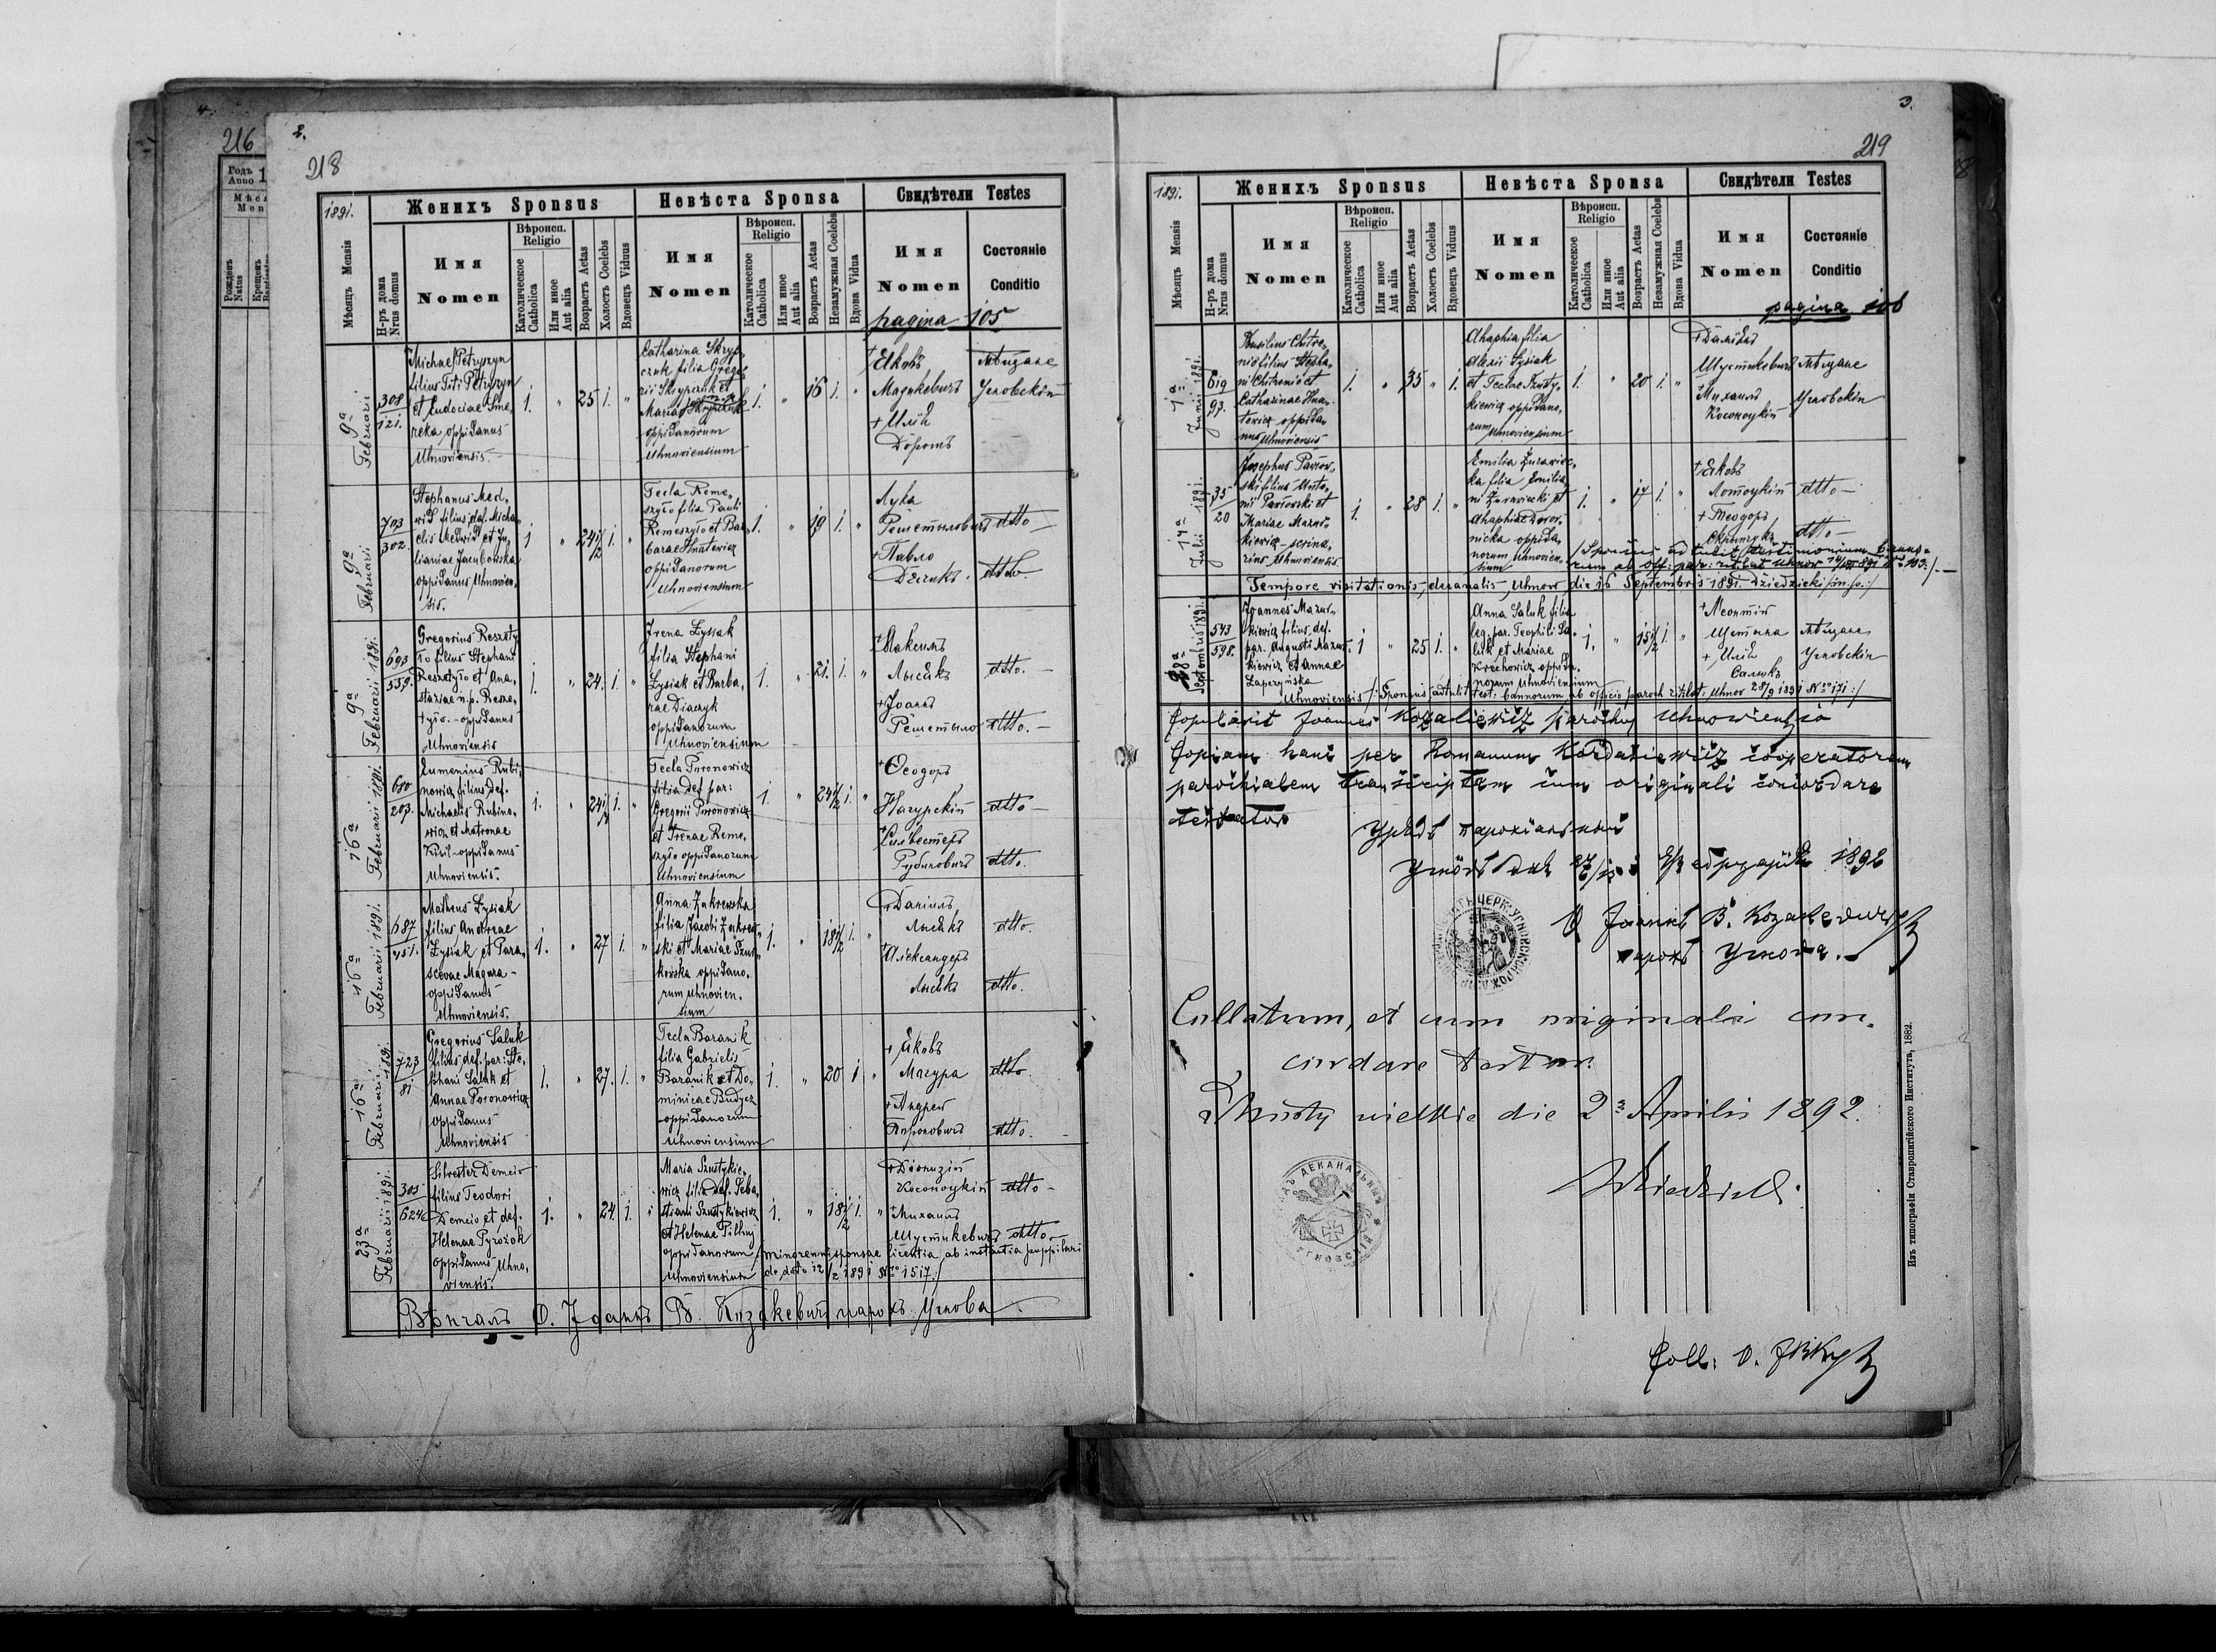 4.
216
Годъ
Anno 1
2.
218
1891.
Женихъ Sponsus
Невѣста Sponsa
Свидѣтели Testes
Мѣсяцъ Mensis
Н-ръ дома
Nrus domus
Имя
Nomen
Вѣроисп.
Religio
Католическое
Catholica
Или иное
Aut alia
Возрастъ Aetas
Холостъ Coelebs
Вдовецъ Viduus
Имя
Nomen
Вѣроисп.
Religio
Католическое
Catholica
Или иное
Aut alia
Возрастъ Aetas
Незамужная Coelebs
Вдова Vidua
Имя
Nomen
Состояніе
Conditio
pagina 105
9a
Februarii
308
121.
Michael Petryszyn
filius Titi Petryszyn
et Eudociae Sme-
reka oppidanus
Uhnoviensis.
1. " 25 1. "
Catharina Skryp-
czuk filia Grego-
rii Skrypczuk et
Maria
oppidanorum
Uhnoviensium
1. " 16 1. "
+ Яковъ
Мадикевичъ
+ Илій
Доротъ
мѣщане
Угновскіи
9a
Februarii
703
302.
Stephanus Med-
wid filius def. Micha-
elis Medwid et Ju-
lianiae Jacubowska
oppidanus Uhnovien-
sis.
1 " 24 1/2 1. "
Tecla Reme-
szyło filia Pauli
Remeszyło et Bar-
barae Hnatewicz
oppidanorum
Uhnoviensium
1. " 19 1. "
Лука
+ Павло
Дячикъ.
dtto
dtto.
9a
Februarii 1891.
693
559.
Gregorius Reszety-
ło filius Stephani
Reszetyło et Ana-
stasiae n.p. Resze-
tyło. - oppidanus
Uhnoviensis
1. " 24. 1. "
Irena Łysiak
filia Stephani
Łysiak et Barba-
rae Diaczyk
oppidanorum
Uhnoviensium
1. " 21. 1. "
+ Максимъ
Лысякъ
+ Іоаннъ
Решетыло
dtto. -
dtto. -
16a
Februarii 1891.
680
203.
Eumenius Rubi-
nowicz filius def.
Michaelis Rubino-
wicz et Matronae
Kisil - oppidanus
Uhnoviensis.
1. " 24 1. "
Tecla Poronowicz
filia def par:
Gregorii Poronowicz
et Irenae Reme-
szyło oppidanorum
Uhnoviensium
1. " 24 1/2 1. "
+ Ѳеодоръ
Нагурскій
+ Сильвестеръ
Рубиновичъ
dtto -
dtto.
16a
Februarii 1891.
687
Matheus Łysiak
filius Andreae
Łysiak et Para-
scevae Magura -
oppidanus -
Uhnoviensis.
1. " 27 1. "
Anna Zakrewska
filia Jacobi Zakrew-
ski et Mariae Szus-
kowska oppidano-
rum Uhnovien-
sium
1. " 18 1/2 1. "
+ Даніилъ
Лысякъ
+ Александеръ
Лысякъ
dtto.
dtto.
16a
Februarii 1891.
723
81.
Gregorius Saluk
filius def. par: Ste-
phani Saluk et
Annae Poronowicz
oppidanus
Uhnoviensis
1. " 27. 1. "
Tecla Baranik
filia Gabrielis
Baranik et Do-
minicae Budycz
oppidanorum
Uhnoviensium
1. " 20 1 "
+ Яковъ
Магура
+ Андрей
dtto
dtto.
23a
Februarii 1891.
305
624
Silvester Demcio
filius Teodori
Demcio et def.
Helenae Pyrożok
oppidanus Uhno-
viensis.
1. " 24. 1. "
Maria Szustykie-
wicz filia def. Seba-
stiani Szustykiewicz
et Helenae
oppidanorum
Uhnoviensium
1. " 18 1/2 1. "
+ Діонизій
Косоноцкій
+ Михаилъ
Шустикевичъ
dtto -
dtto. -
/minorennis sponsae licentia ab instantia puppilari
de dato 12/2 1891 Nro 1517./
Вѣнчалъ О. Іоаннъ В. Козакевичъ парохъ Угнова
3.
219
1891.
Женихъ Sponsus
Невѣста Sponsa
Свидѣтели Testes
Мѣсяцъ Mensis
Н-ръ дома
Nrus domus
Имя
Nomen
Вѣроисп.
Religio
Католическое
Catholica
Или иное
Aut alia
Возрастъ Aetas
Холостъ Coelebs
Вдовецъ Viduus
Имя
Nomen
Вѣроисп.
Religio
Католическое
Catholica
Или иное
Aut alia
Возрастъ Aetas
Незамужная Coelebs
Вдова Vidua
Имя
Nomen
Состояніе
Conditio
pagina 106
Junii 1891.
619
93.
Basilius Chitre-
nio filius Stepha-
ni Chitrenio et
Catharinae Hna-
tewicz oppida-
nus Uhnoviensis
1. " 35 " 1.
Ahaphia filia
Alexii Łysiak
et Teclae Szusty-
kiewicz oppidano-
rum Uhnoviensium
1. " 20 1. "
+ Даніилъ
Шустикевичъ
+ Михаилъ
Косоноцкій
мѣщане
Угновскіи
14a
Julii 1891.
35
20
Josephus Pawłow-
ski filius Anto-
nii Pawłowski et
Mariae Mazur-
kiewicz -
Uhnoviensis
1. " 28 1. "
Emilia Żurawiec-
ka filia Emilia-
ni Żurawiecki et
Ahaphiae
oppida-
norum Uhnovien-
sium
1. " 17 1. "
+ Яковъ
Лотоцкій
+ Теодоръ
Скрипчукъ
dtto -
dtto -
/Sponsus adtulit testimonium banno-
rum ab off: par: rit. lat. Uhnow
Tempore visitationis decanalis, Uhnow die 16 Septembris 1891. Dziedzicki
28a
Septembris 1891.
543
598.
Joannes Mazur-
kiewicz filius def.
par. Augusti Mazur-
kiewicz et Annae
Łapczyńska
Uhnoviensis
1 " 25 1. "
Anna Saluk filia
leg. par. Teophili Sa-
luk et Mariae
Krechowicz oppida-
norum Uhnoviensium
1. " 15 1/2 1. "
+ Леонтій
Щетина
+ Илій
Салюкъ
мѣщане
Угновскіи
/:Sponsus adtulit test: bannorum ab officio paroch rit. lat. Uhnov 28/9 1891 Nro 171:/
Copulavit Joannes Kozakiewicz parochus Uhnowiensis
Copiam hanc per Romanum Kordasiewicz cooperatorem
parochialem transcriptam cum originali concordare
testator
Урядъ парохіальный
Угнôвъ дня 27/15 Февруарія 1892
О. Іоаннъ В. Козакевичъ
парохъ Угнова.
Collatum, et cum originali con-
cordare testor.
Mosty wielkie die 2a Aprilis 1892.
Dziedzicki.
ДЕКАНАЛЬНЫЙ
Coll: О.
Изъ типографіи Ставропигійского Института, 1882.